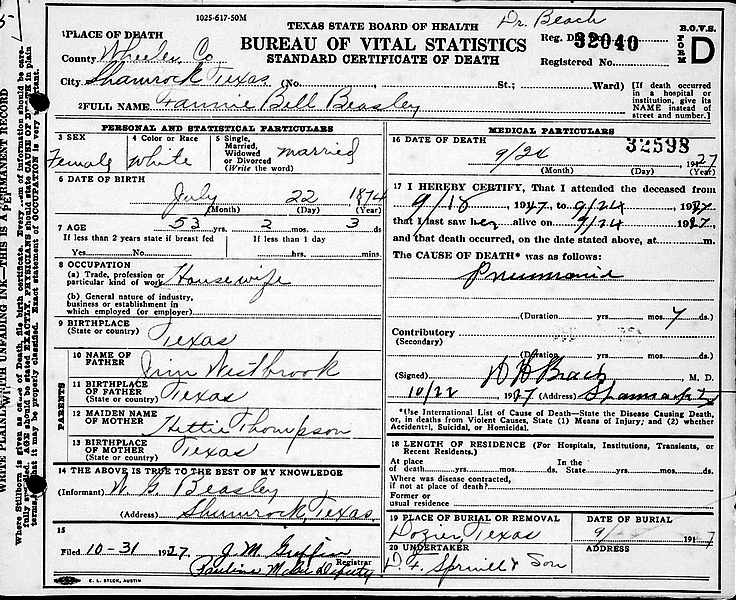 1025-617-50M
TEXAS STATE BOARD OF HEALTH
Dr. Beach
B.O.V.S.
FORM D
BUREAU OF VITAL STATISTICS
STANDARD CERTIFICATE OF DEATH
Reg. Dis. 32040
Registered No.
1 PLACE OF DEATH
County Wheeler Co
City Shamrock Texas (No. St.; Ward)
[If death occurred in a hospital or institution, give its NAME instead of street and number.]
2 FULL NAME Fannie Bell Beasley
PERSONAL AND STATISTICAL PARTICULARS
3 SEX Female
4 Color or Race White
5 Single, Married, Widowed or Divorced (Write the word) married
6 DATE OF BIRTH
July 22 1874
(Month) (Day) (Year)
7 AGE 53 yrs. 2 mos. 3 ds.
If less than 2 years state if breast fed
If less than 1 day
Yes No hrs. mins.
8 OCCUPATION
(a) Trade, profession or particular kind of work Housewife
(b) General nature of industry, business or establishment in which employed (or employer)
9 BIRTHPLACE (State or country) Texas
PARENTS
10 NAME OF FATHER Jim Westbrook
11 BIRTHPLACE OF FATHER (State or country) Texas
12 MAIDEN NAME OF MOTHER Hettie Thompson
13 BIRTHPLACE OF MOTHER (State or country) Texas
14 THE ABOVE IS TRUE TO THE BEST OF MY KNOWLEDGE
(Informant) W. G. Beasley
(Address) Shamrock, Texas.
15
Filed 10-31 1927 J. M. Griffin
Registrar
Pauline Deputy
E. L. STECK, AUSTIN
MEDICAL PARTICULARS
32598
16 DATE OF DEATH
9/24 1927
(Month) (Day) (Year)
17 I HEREBY CERTIFY, That I attended the deceased from
9/18 1927 to 9/24 1927
that I last saw her alive on 9/24 1927
and that death occurred, on the date stated above, at m.
The CAUSE OF DEATH* was as follows:
Pneumonia
(Duration yrs. mos. 7 ds.)
Contributory
(Secondary)
(Duration yrs. mos. ds.)
(Signed) Beach M. D.
10/22 1927 (Address)
*Use International List of Cause of Death—State the Disease Causing Death, or, in deaths from Violent Causes, State (1) Means of Injury; and (2) whether Accidental, Suicidal, or Homicidal.
18 LENGTH OF RESIDENCE (For Hospitals, Institutions, Transients, or Recent Residents.)
At place of death yrs. mos. ds. In the State yrs. mos. ds.
Where was disease contracted, if not at place of death?
Former or usual residence
19 PLACE OF BURIAL OR REMOVAL
Dozier Texas
DATE OF BURIAL
20 UNDERTAKER
ADDRESS
Sprinill & Son
WRITE PLAINLY WITH UNFADING INK—THIS IS A PERMANENT RECORD